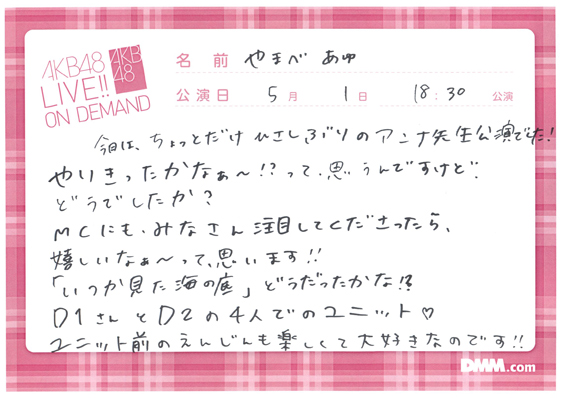 AKB48
LIVE!!
ON DEMAND
AKB
48
名前 やまべ あゆ
公演日 5月 1日 18:30 公演
今日は、ちょっとだけひさしぶりのアンナ先生公演でした!
やりきったかなぁ〜!?って、思うんですけど、
どうでしたか?
MCにも、みなさん注目してくださったら、
嬉しいなぁ〜って、思います!!
「いつか見た海の底」どうだったかな!?
D1さんとD2の4人でのユニット♡
ユニット前のえんじんも楽しくて大好きなのです!!
DMM.com